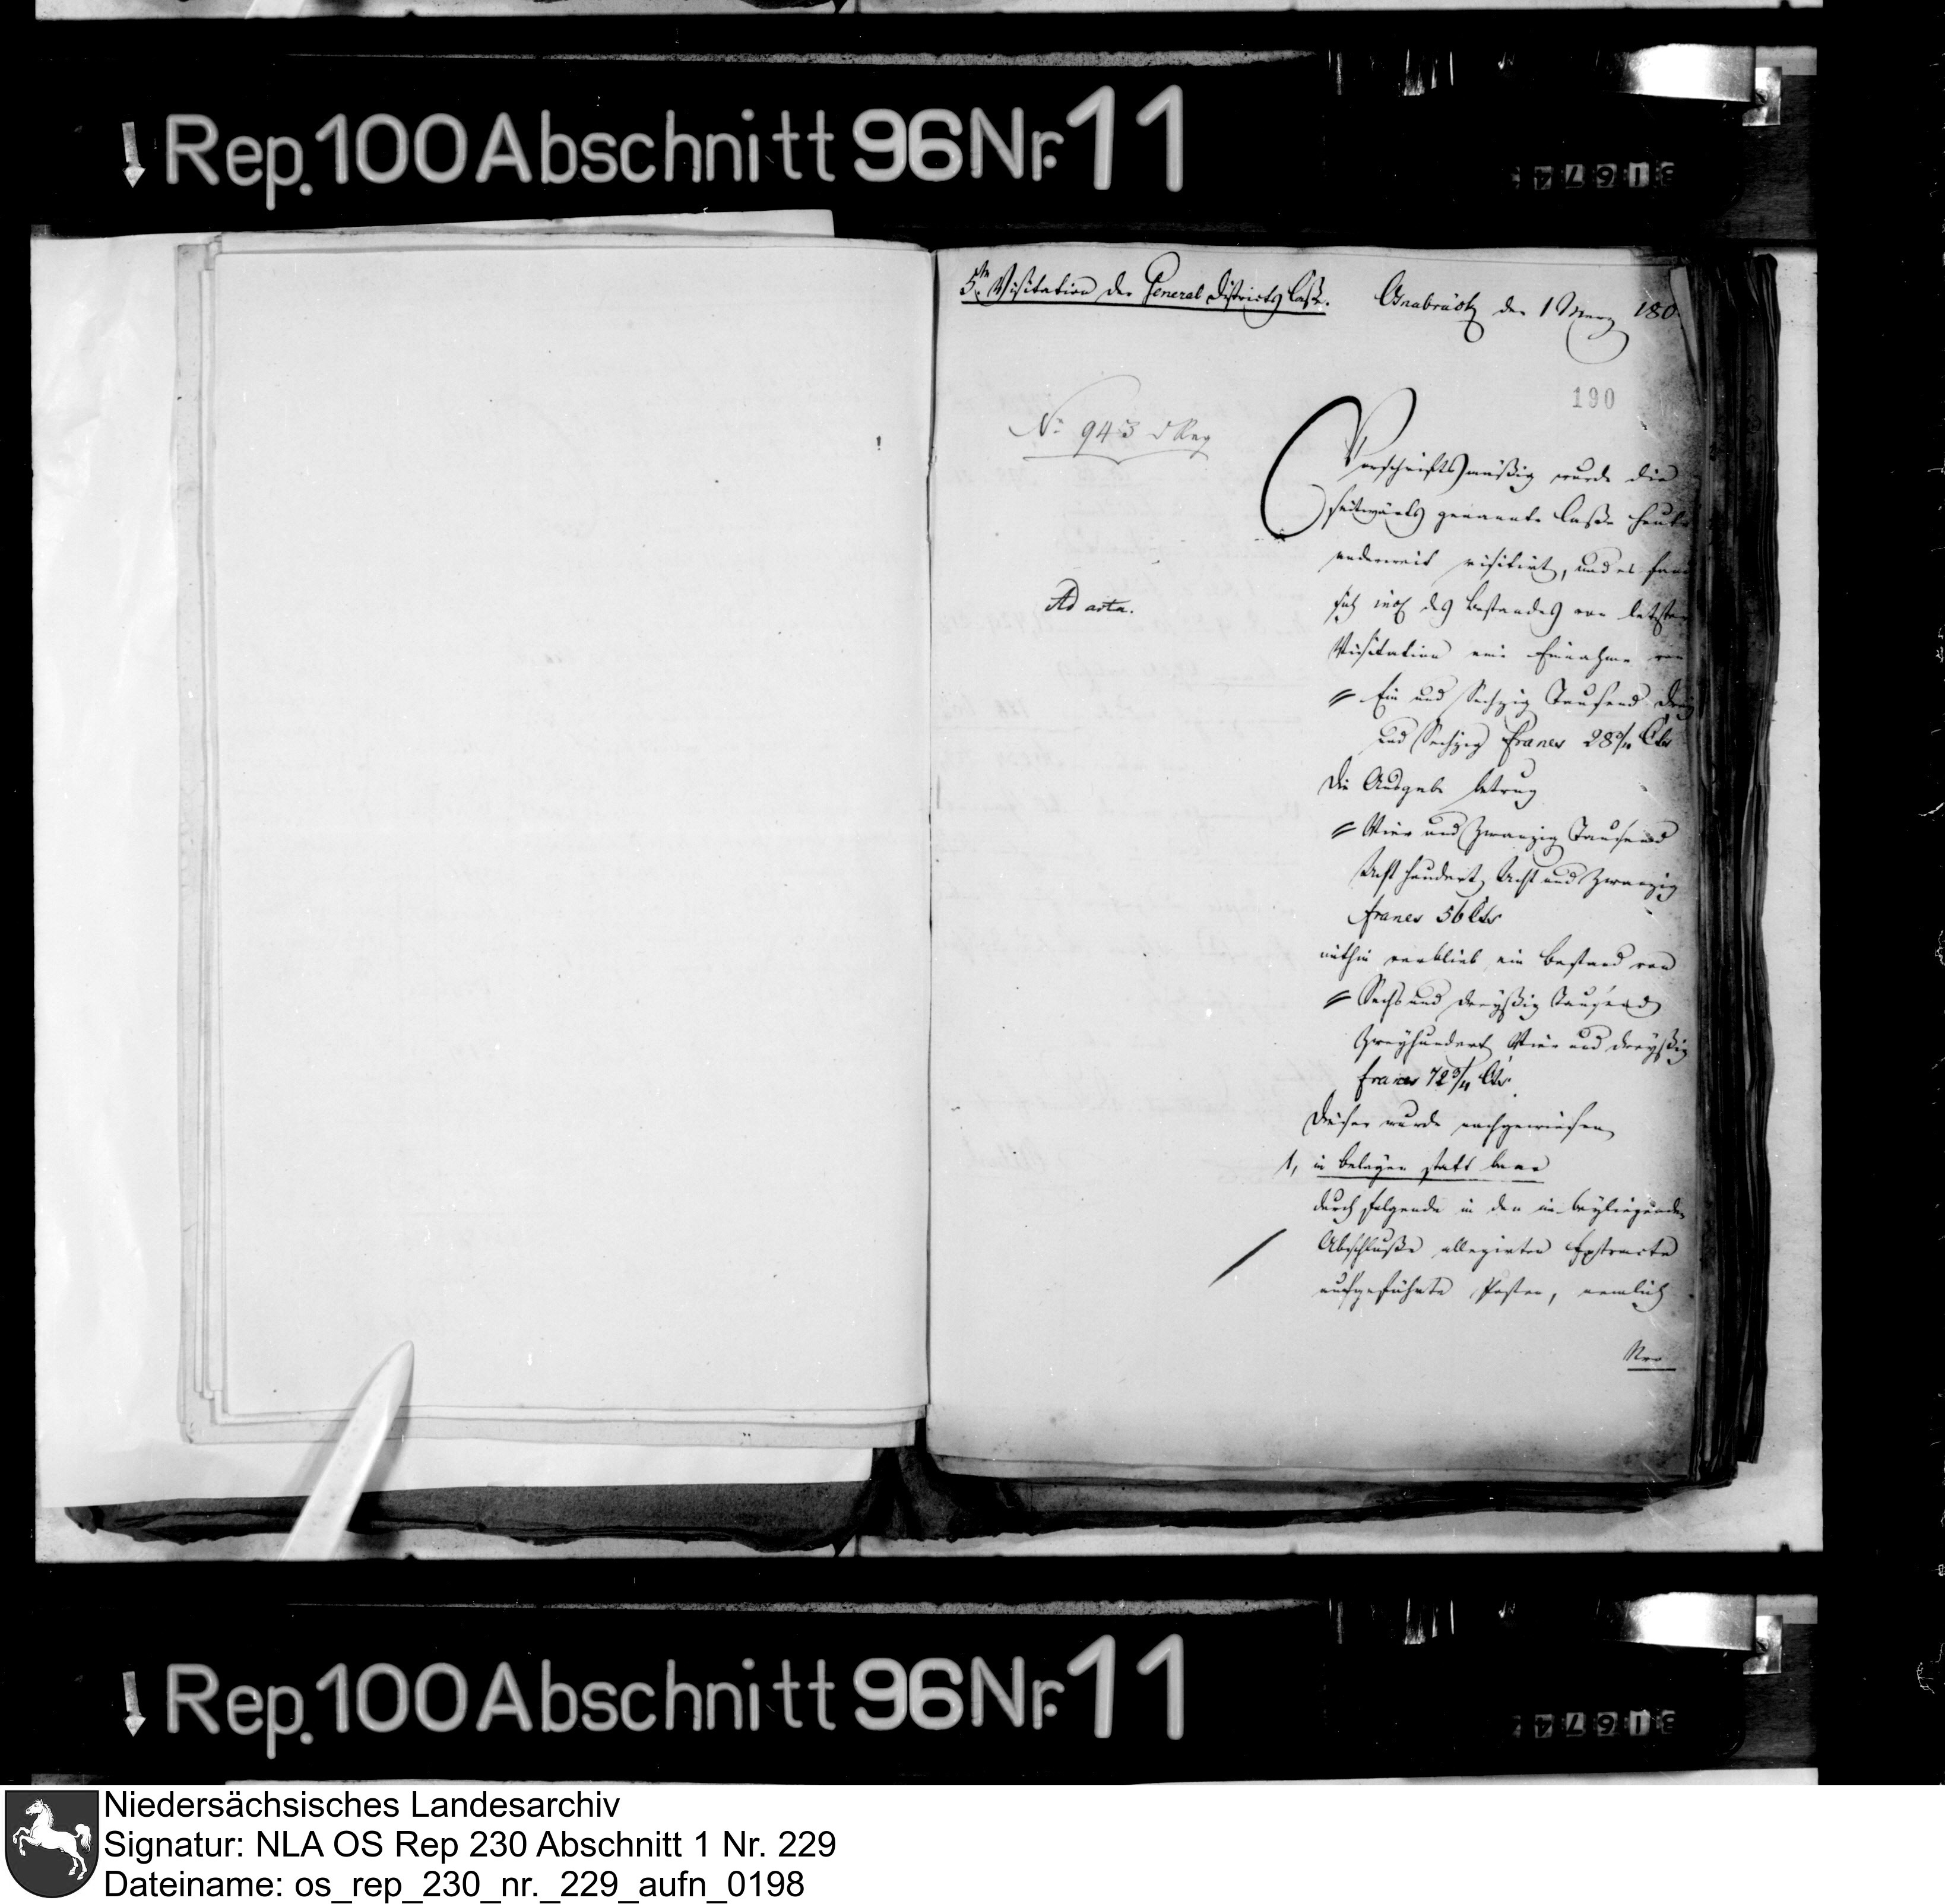 Rep. 100 Abschnitt 96 Nr. 11
5te Visitation der General Districts Casse. Osnabrück den 1 Merz 180
190
No 943 d Reg
Vorschriftsmäßig wurde die
seitwärts genannte Casse heute
anderweit visitirt, und es fand
Ad acta.
sich incl des Bestandes von letzter
Visitation eine Einnahme von
Ein und Sechzig Tausend drey
und Sechzig Francs 28 3/4 Cts
Die Ausgabe betrug
Vier und Zwanzig Tausend
Acht hundert Acht und Zwanzig
francs 56 Cts
mithin verblieb ein Bestand von
Sechs und dreyßig Tausend
Zweyhundert Vier und dreyßig
francs 72 3/4 Cts.
Dieser wurde nachgewiesen
1, in Belägen statt baar
durch folgende in den im beyliegenden
Abschluße allegirten Extracte
aufgeführte Posten, nemlich
Nro
Rep. 100 Abschnitt 96 Nr. 11
Niedersächsisches Landesarchiv
Signatur: NLA OS Rep 230 Abschnitt 1 Nr. 229
Dateiname: os_rep_230_nr._229_aufn_0198